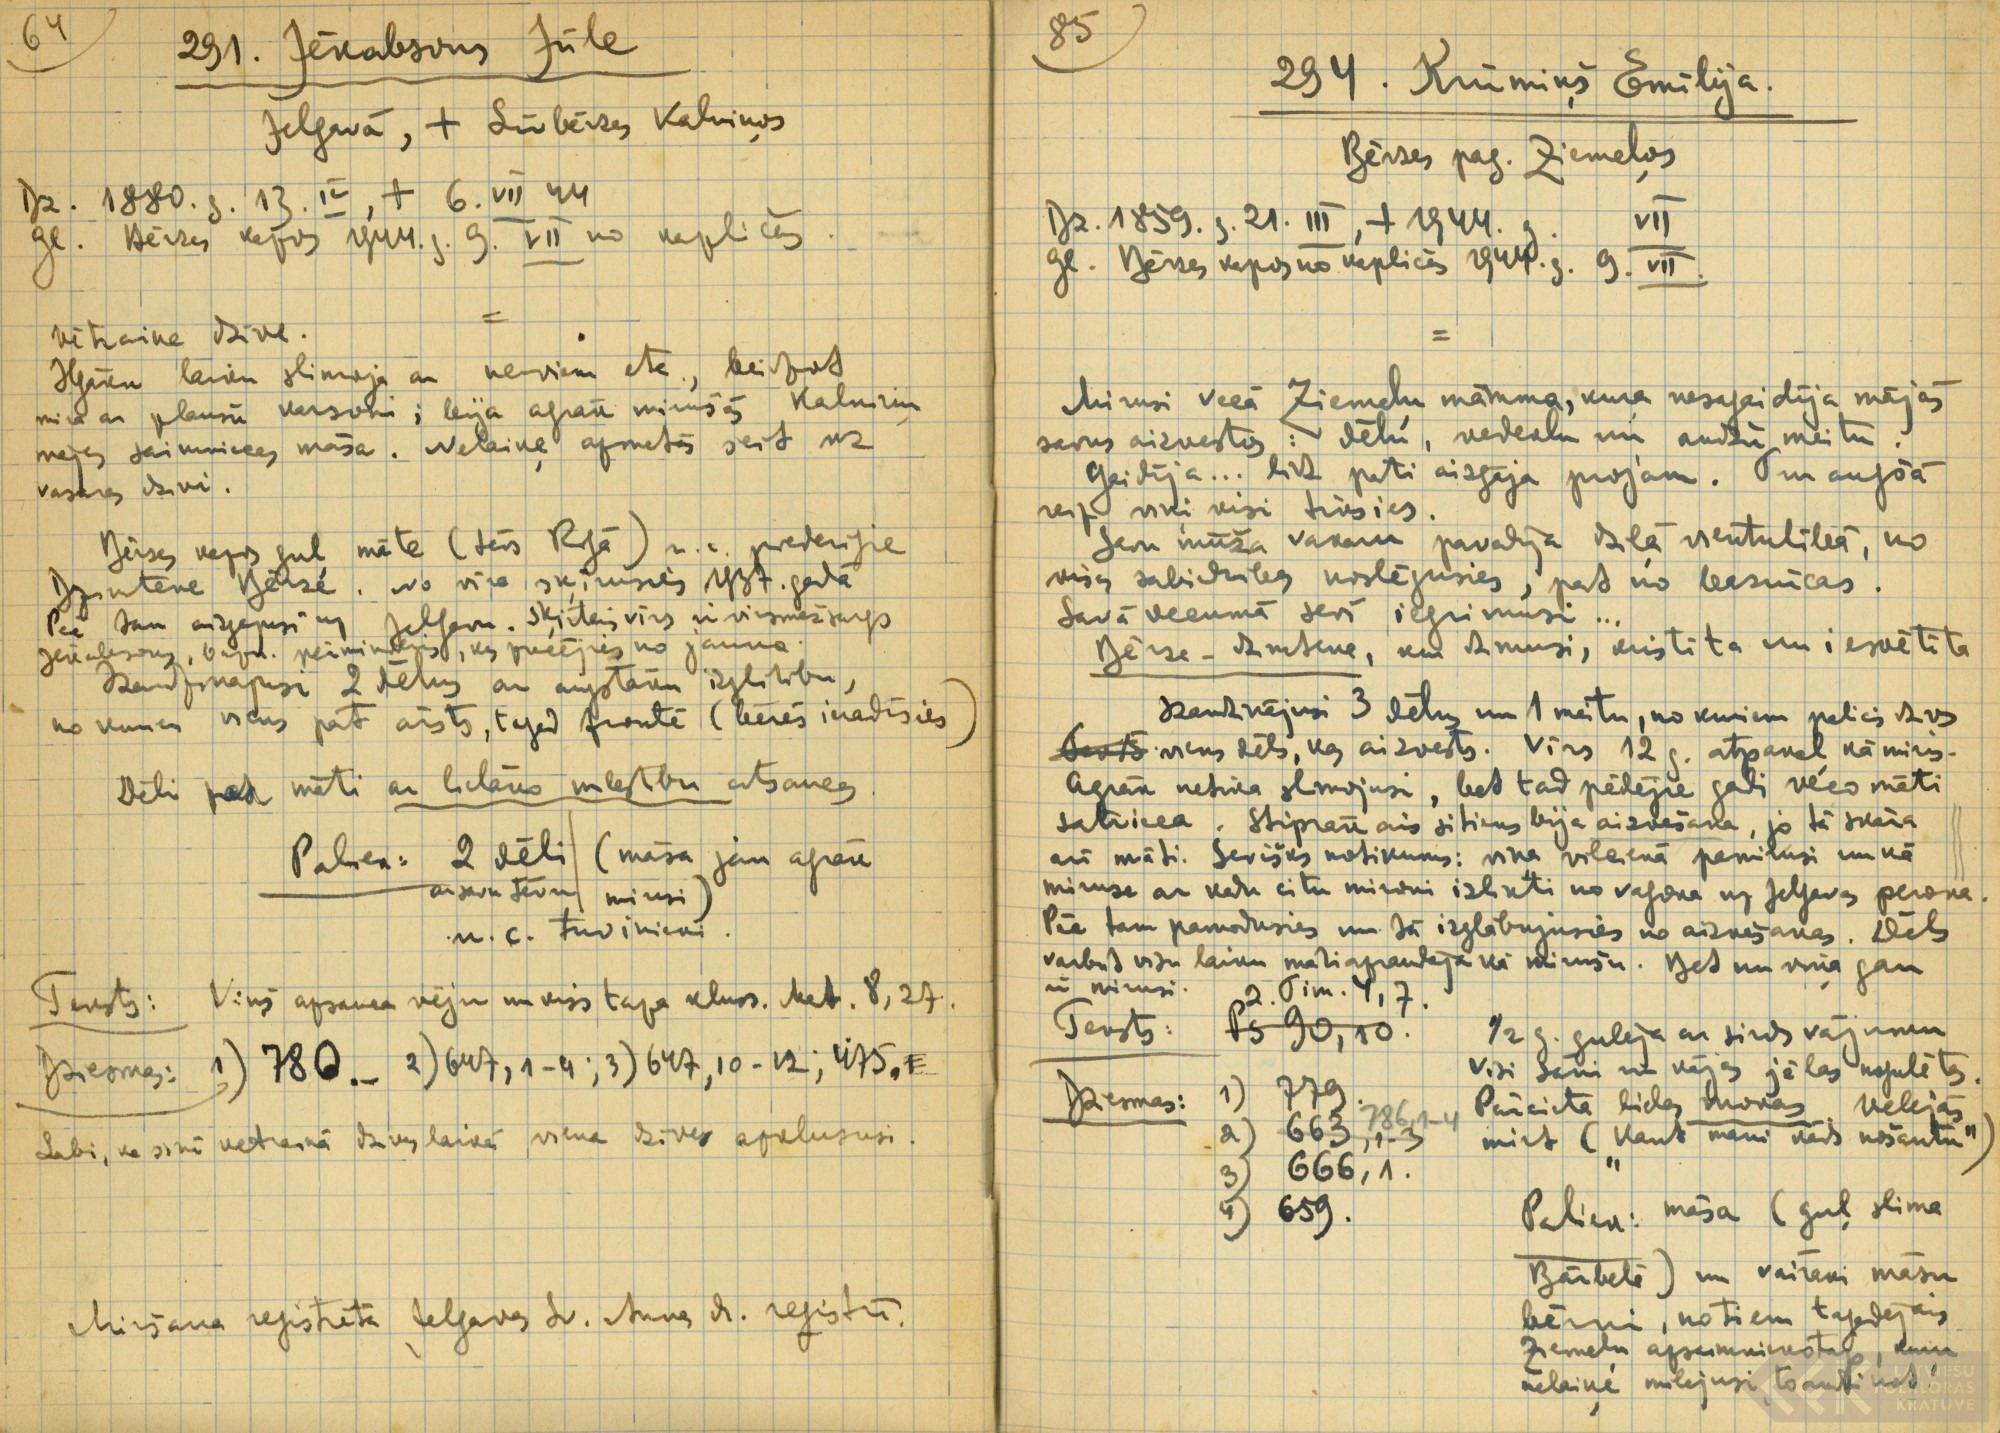 64
291. Jēkabsons Jūle
Jelgavā, + Līvbērzes Kalniņos
Dz. 1880. g. 13. IV, + 6. VII 44
Gl. Bērzes kapos 1944. g. 9. VII no kapličas.
=
Vētraina dzīve.
Ilgāku laiku slimoja ar nerviem etc., beidzot
mira ar plaušu karsoni; bija agrāk mirušās Kalniņu
mājas saimnieces māsa. Nelaiķe apmetās šeit uz
vasaras dzīvi.
Bērzes kapos guļ māte (tēvs Rīgā) u. c. piederīgie
Dzimtene Bērze. No vīra šķīrusies 1937. gadā
Pēc tam aizgājusi uz Jelgavu. Šķirtais vīrs ir virsmežsargs
Jēkabsons, bapt. pārminējis, kas precējies no jauna.
Izaudzinājusi 2 dēlus ar augstāku izglītību,
no kuriem viens pat ārsts, tagad frontē (bērēs ieradīsies)
Dēli pat māti ar lielāko mīlestību atsauces.
Paliek: 2 dēli (māsa jau agrāk
ar savu tēvu mirusi)
u. c. tuvinieki.
Teksts: Viņš apsauca vēju un viss tapa kluss. Mat. 8, 27.
Dziesmas: 1) 780. – 2) 647, 1-4; 3) 647, 10-12; 475,
Labi, ka šinī vētrainā dzīves laikā viena dzīve apklususi.
Miršana reģistrēta Jelgavas Sv. Annas dr. reģistrī.
85
294. Krūmiņš Emīlija.
Bērzes pag. Ziemeļos
Dz. 1859. g. 21. III, + 1944. g. VII
Gl. Bērzes kapos no kapličas 1944. g. 9. VII.
=
Mirusi vecā Ziemeļu māmma, kura nesagaidīja mājās
savus aizvestos: dēlu, vedeklu un audžu meitu.
Gaidīja... līdz pati aizgāja projām. Tur augšā
reiz viņi visi tiksies.
Savu mūža vakaru pavadīja dziļā vientulībā, no
visas sabiedrības noslēgusies, pat no baznīcas.
Savā vecumā sevī iegrimusi...
Bērze – dzimtene, kur dzimusi, kristīta un iesvētīta
Izaudzinājusi 3 dēlus un 1 meitu, no kuriem palicis dzīvs
viens dēls, kas aizvests. Vīrs 12 g. atpakaļ kā miris.
Agrāk netika slimojusi, bet tad pēdējie gadi vēco māti
satricea. Stiprākais sitiens bija aizvešana, jo tā skāra
arī māti. Sevišķs notikums: viņa vilcienā pamirusi un kā
mirusē ar kādu citu mironi izlikti no vagona uz Jelgavas perona.
Pēc tam pamodusies un tā izglābusies no aizvešanas. Dēls
varbūt visu laiku māti apraudāja kā mirušu. Bet nu viņa gan
ir mirusi.
2. Tim. 4, 7.
Teksts: Ps 90, 10.
Dziesmas: 1) 779.
2) 663, 1-3 786, 1-4
3) 666, 1.
4) 659.
1/2 g. gulēja ar sirds vājumu
Visi sāni un kājas jēlas nogulētas.
Pārcieta lielas mokas. Vēlējās
mirt ("Kaut mani kāds nošautu")
Paliek: māsa (guļ slima
Bārbelē) un vairāki māsu
bērni, no tiem tagadējais
Ziemeļu apsaimniekotājs, kuru
nelaiķe mīlējusi